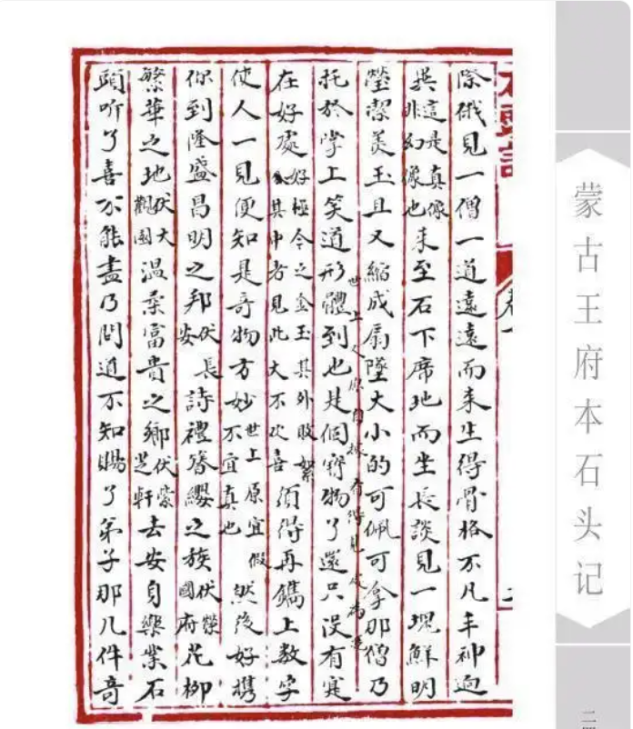 除俄見一僧一道遠遠而来生得骨格不凡丰神迥
異這是真像非幻像也来至石下席地而坐長談見一塊鮮明
瑩潔美玉且又縮成扇墜大小的可佩可拿那僧乃
世上人原自據看得見處為憑
托於掌上笑道形體到也是個寶物了還只没有寔
在好處好極今之金玉其外敗絮其中者見此大不歡喜須得再鐫上數字
使人一見便知是奇物方妙世上原宜假不宜真也然後好携
你到隆盛昌明之邦伏長安詩禮簪纓之族伏榮國府花柳
繁華之地伏大觀園温柔富貴之鄉伏紫芝軒去安身樂業石
頭听了喜不能盡乃問道不知賜了弟子那几件奇
蒙古王府本石头记